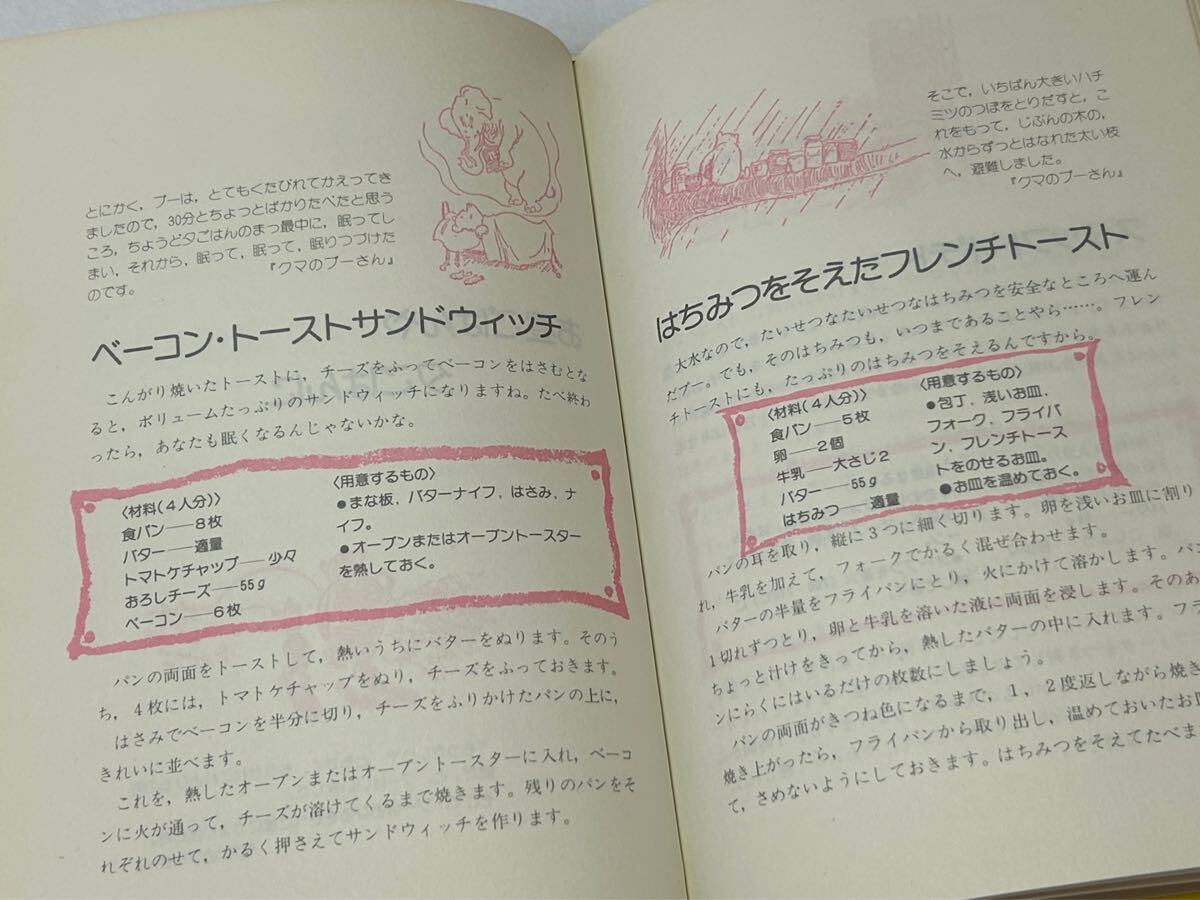 とにかく，プーは，とてもくたびれてかえってき
ましたので，30分とちょっとばかりたべたと思う
ころ，ちょうど夕ごはんのまっ最中に，眠ってし
まい，それから，眠って，眠って，眠りつづけた
のです。
『クマのプーさん』
ベーコン・トーストサンドウィッチ
こんがり焼いたトーストに，チーズをふってベーコンをはさむとな
ると，ボリュームたっぷりのサンドウィッチになりますね。たべ終わ
ったら，あなたも眠くなるんじゃないかな。
〈材料(4人分)〉
食パン──8枚
バター──適量
トマトケチャップ──少々
おろしチーズ──55g
ベーコン──6枚
〈用意するもの〉
●まな板、バターナイフ、はさみ、ナ
イフ。
●オーブンまたはオーブントースター
を熱しておく。
パンの両面をトーストして，熱いうちにバターをぬります。そのう
ち，4枚には，トマトケチャップをぬり，チーズをふっておきます。
はさみでベーコンを半分に切り，チーズをふりかけたパンの上に，
きれいに並べます。
これを，熱したオーブンまたはオーブントースターに入れ，ベーコ
ンに火が通って，チーズが溶けてくるまで焼きます。残りのパンをそ
れぞれのせて，かるく押さえてサンドウィッチを作ります。
そこで，いちばん大きいハチ
ミツのつぼをとりだすと，こ
れをもって，じぶんの木の，
水からずっとはなれた太い枝
へ，避難しました。
『クマのプーさん』
はちみつをそえたフレンチトースト
大水なので，たいせつなたいせつなはちみつを安全なところへ運ん
だプー。でも，そのはちみつも，いつまであることやら……。フレン
チトーストにも，たっぷりのはちみつをそえるんですから。
〈材料(4人分)〉
食パン──5枚
卵──2個
牛乳──大さじ2
バター──55g
はちみつ──適量
〈用意するもの〉
●包丁、浅いお皿、
フォーク、フライパ
ン、フレンチトース
トをのせるお皿。
●お皿を温めておく。
パンの耳を取り，縦に3つに細く切ります。卵を浅いお皿に割り
れ，牛乳を加えて，フォークでかるく混ぜ合わせます。
バターの半量をフライパンにとり，火にかけて溶かします。パン
1切れずつとり，卵と牛乳を溶いた液に両面を浸します。そのあ
ちょっと汁けをきってから，熱したバターの中に入れます。フラ
ンにらくにはいるだけの枚数にしましょう。
パンの両面がきつね色になるまで，1，2度返しながら焼き
焼き上がったら，フライパンから取り出し，温めておいたお皿
て，さめないようにしておきます。はちみつをそえてたべま